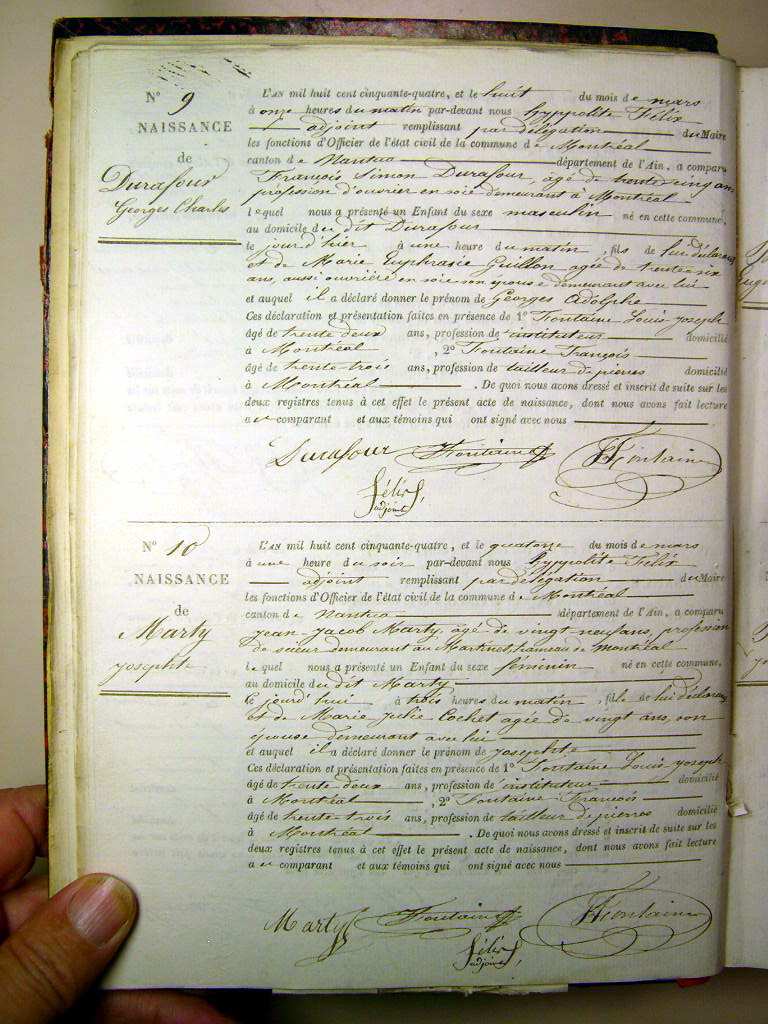 N° 9
NAISSANCE
de
Durafour
Georges Charles
L'AN mil huit cent cinquante-quatre, et le huit du mois de mars
à onze heures du matin par-devant nous hyppolite Félix
adjoint remplissant par délégation du Maire
les fonctions d'Officier de l'état civil de la commune de Montréal
canton de Nantua département de l'Ain, a comparu
François Simon Durafour, âgé de trente cinq ans
profession d'ouvrier en soie demeurant à Montréal
lequel nous a présenté un Enfant du sexe masculin né en cette commune,
au domicile du dit Durafour
le jour d'hier à une heure du matin, fils de lui déclarant
et de Marie Euphrasie Guillon agée de trente six
ans, aussi ouvrière en soie son épouse demeurant avec lui
et auquel il a déclaré donner le prénom de Georges Adolphe
Ces déclaration et présentation faites en présence de 1° Fontaine Louis joseph
âgé de trente deux ans, profession de instituteur domicilié
à Montréal, 2° Fontaine François
âgé de trente-trois ans, profession de tailleur de pierres domicilié
à Montréal. De quoi nous avons dressé et inscrit de suite sur les
deux registres tenus à cet effet le présent acte de naissance, dont nous avons fait lecture
au comparant et aux témoins qui ont signé avec nous
Durafour Fontaine FFontaine
Félix
adjoint
N° 10
NAISSANCE
de
Marty
josephte
L'AN mil huit cent cinquante-quatre, et le quatorze du mois de mars
à une heure du soir par-devant nous hyppolite Félix
adjoint remplissant par délégation du Maire
les fonctions d'Officier de l'état civil de la commune de Montréal
canton de Nantua département de l'Ain, a comparu
jean-jacob Marty, âgé de vingt neuf ans, profession
de scieur demeurant au Martinet, hameau de Montréal
lequel nous a présenté un Enfant du sexe féminin né en cette commune,
au domicile du dit Marty
le jourd'hui à trois heures du matin, fille de lui déclarant
et de Marie julie Cochet agée de vingt ans, son
épouse demeurant avec lui
et auquel il a déclaré donner le prénom de josephte
Ces déclaration et présentation faites en présence de 1° Fontaine Louis joseph
âgé de trente deux ans, profession d'instituteur domicilié
à Montréal, 2° Fontaine François
âgé de trente trois ans, profession de tailleur de pierres domicilié
à Montréal. De quoi nous avons dressé et inscrit de suite sur les
deux registres tenus à cet effet le présent acte de naissance, dont nous avons fait lecture
au comparant et aux témoins qui ont signé avec nous
Marty Fontaine FFontaine
Félix
adjoint